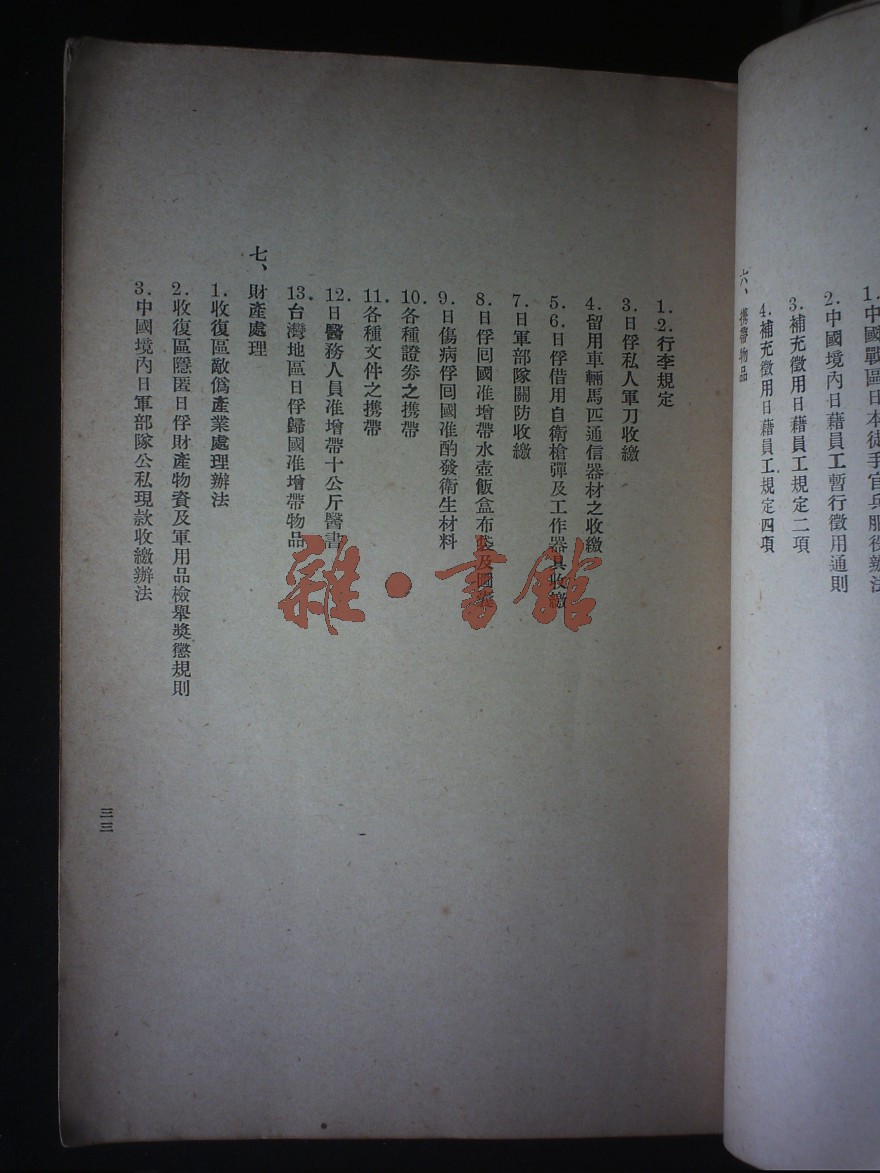 1.中國戰區日本徒手官兵服役辦法
2.中國境內日藉員工暫行徵用通則
3.補充徵用日藉員工規定二項
4.補充徵用日藉員工規定四項
六、攜帶物品
1.2.行李規定
3.日俘私人軍刀收繳
4.留用車輛馬匹通信器材之收繳
5.6.日俘借用自衛槍彈及工作器具收繳
7.日軍部隊關防收繳
8.日俘囘國准增帶水壺飯盒布袋及圖
9.日傷病俘囘國准酌發衛生材料
10.各種證券之携帶
11.各種文件之携帶
12.日醫務人員准增帶十公斤醫書
13.台灣地區日俘歸國准增帶物品
七、財產處理
1.收復區敵僞產業處理辦法
2.收復區隱匿日俘財產物資及軍用品檢舉獎懲規則
3.中國境內日軍部隊公私現款收繳辦法
三三
雜·書館